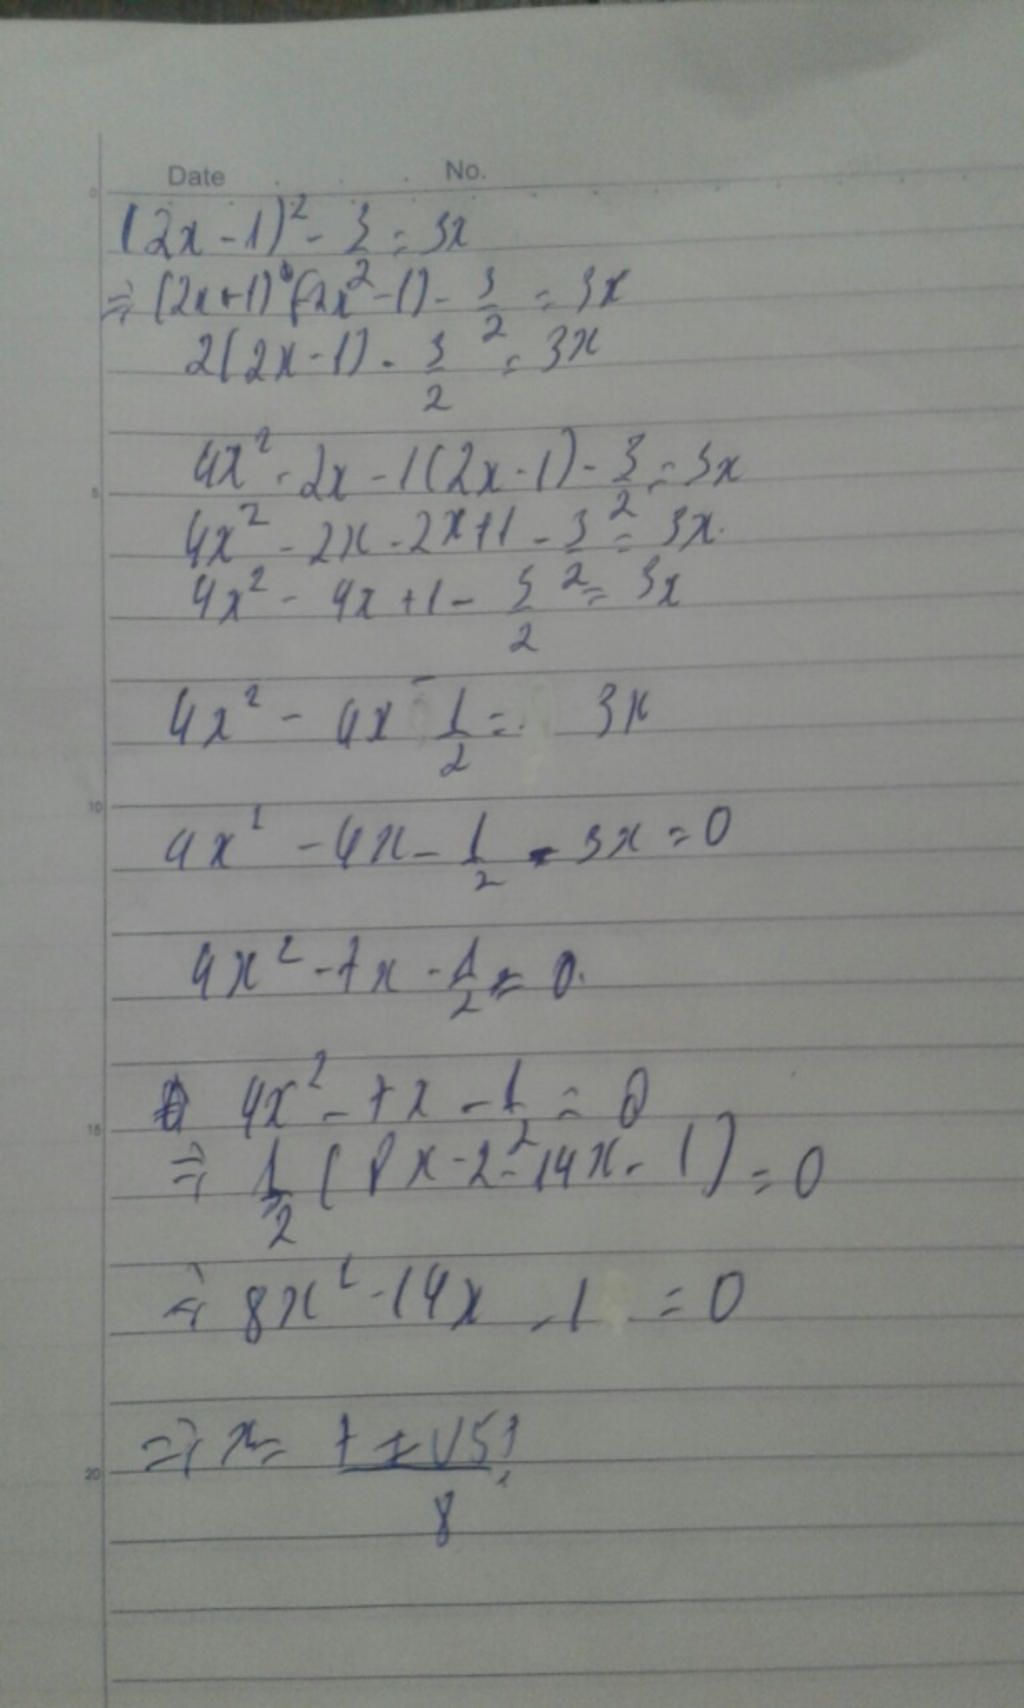 Date No.
(2x - 1)² - 3 = 3x
⇒ (2x+1) (2x² - 1) - 3/2 = 3x
2(2x - 1) - 3/2 = 3x
4x² - 2x - 1(2x - 1) - 3/2 = 3x
4x² - 2x - 2x + 1 - 3/2 = 3x
4x² - 4x + 1 - 3/2 = 3x
4x² - 4x - 1/2 = 3x
4x² - 4x - 1/2 - 3x = 0
4x² - 7x - 1/2 = 0
4x² - 7x - 1/2 = 0
⇒ 1/2 (8x - 2 - 14x - 1) = 0
⇒ 8x² - 14x - 1 = 0
⇒ x = 7 ± √57 / 8
0
5
10
15
20